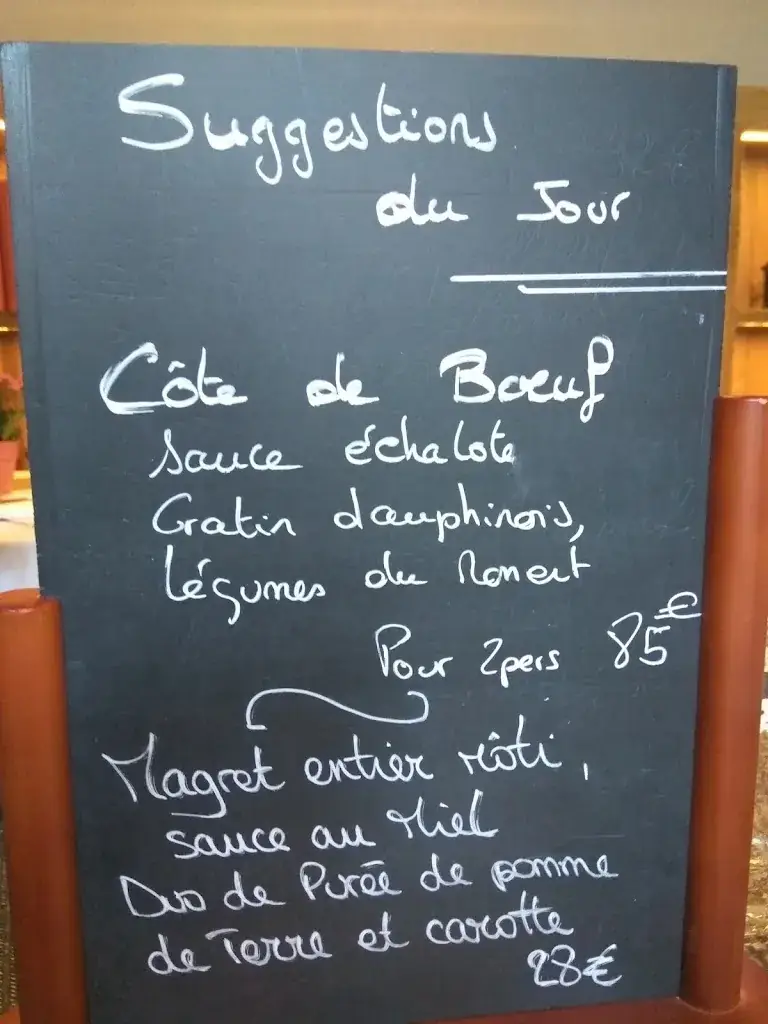 Suggestions
du Jour
Côte de Boeuf
sauce échalote
Gratin dauphinois,
légumes du Moment
Pour 2pers 85€
Magret entier rôti,
sauce au Miel
Duo de Purée de pomme
de Terre et carotte
28€